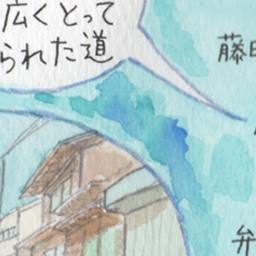 広くとって
られた道
藤田
弁